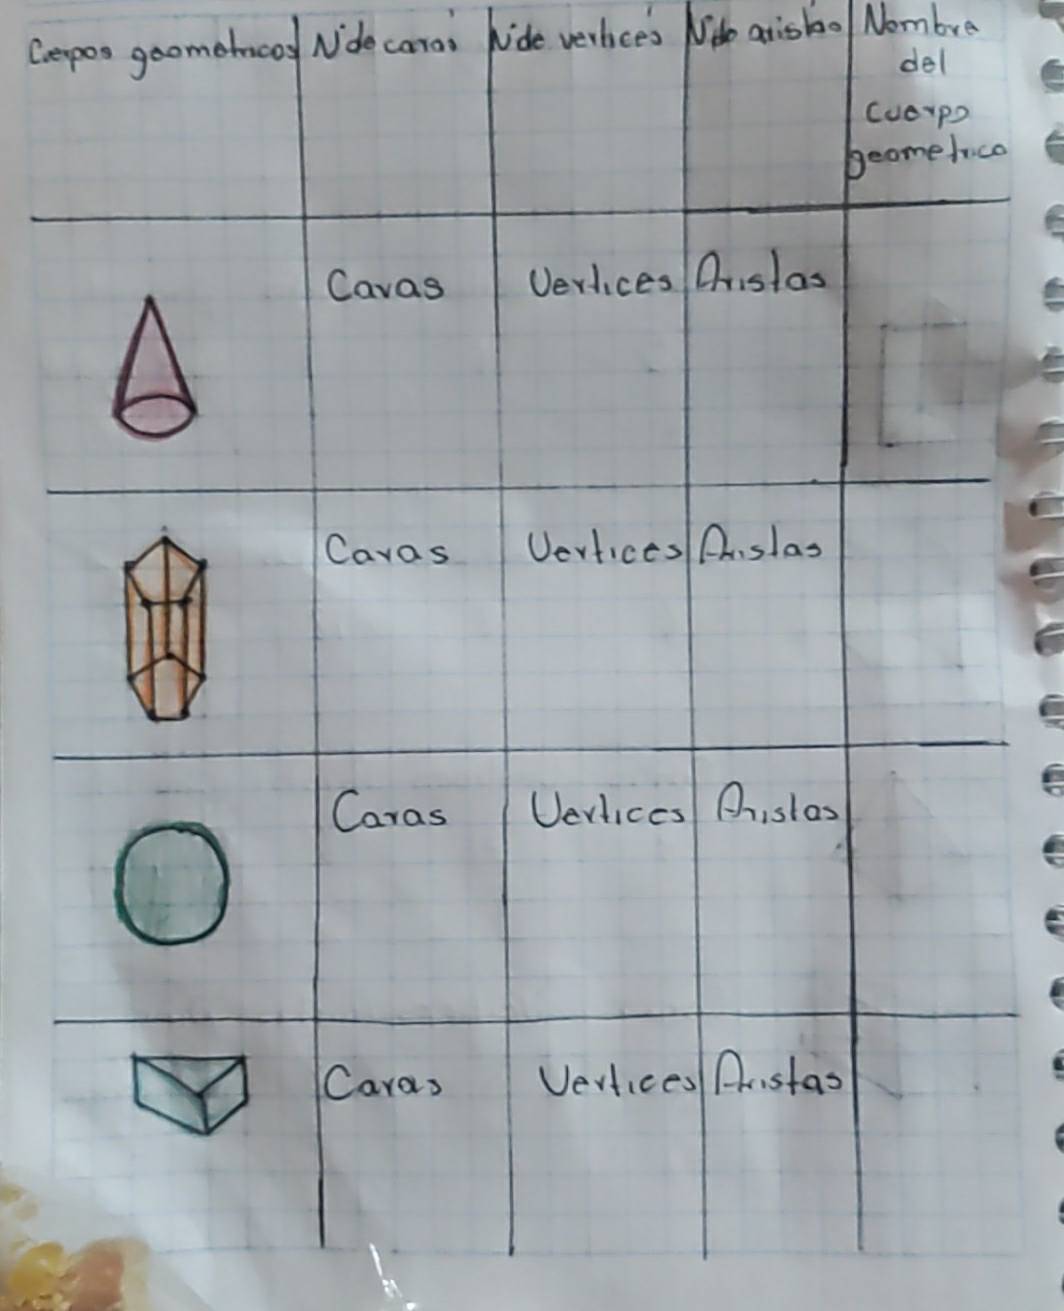 Cuerpos geometricos N° de caras N° de vertices N° de aristas Nombre
del
cuerpo
geometrico
Caras Vertices Aristas
Caras Vertices Aristas
Caras Vertices Aristas
Caras Vertices Aristas